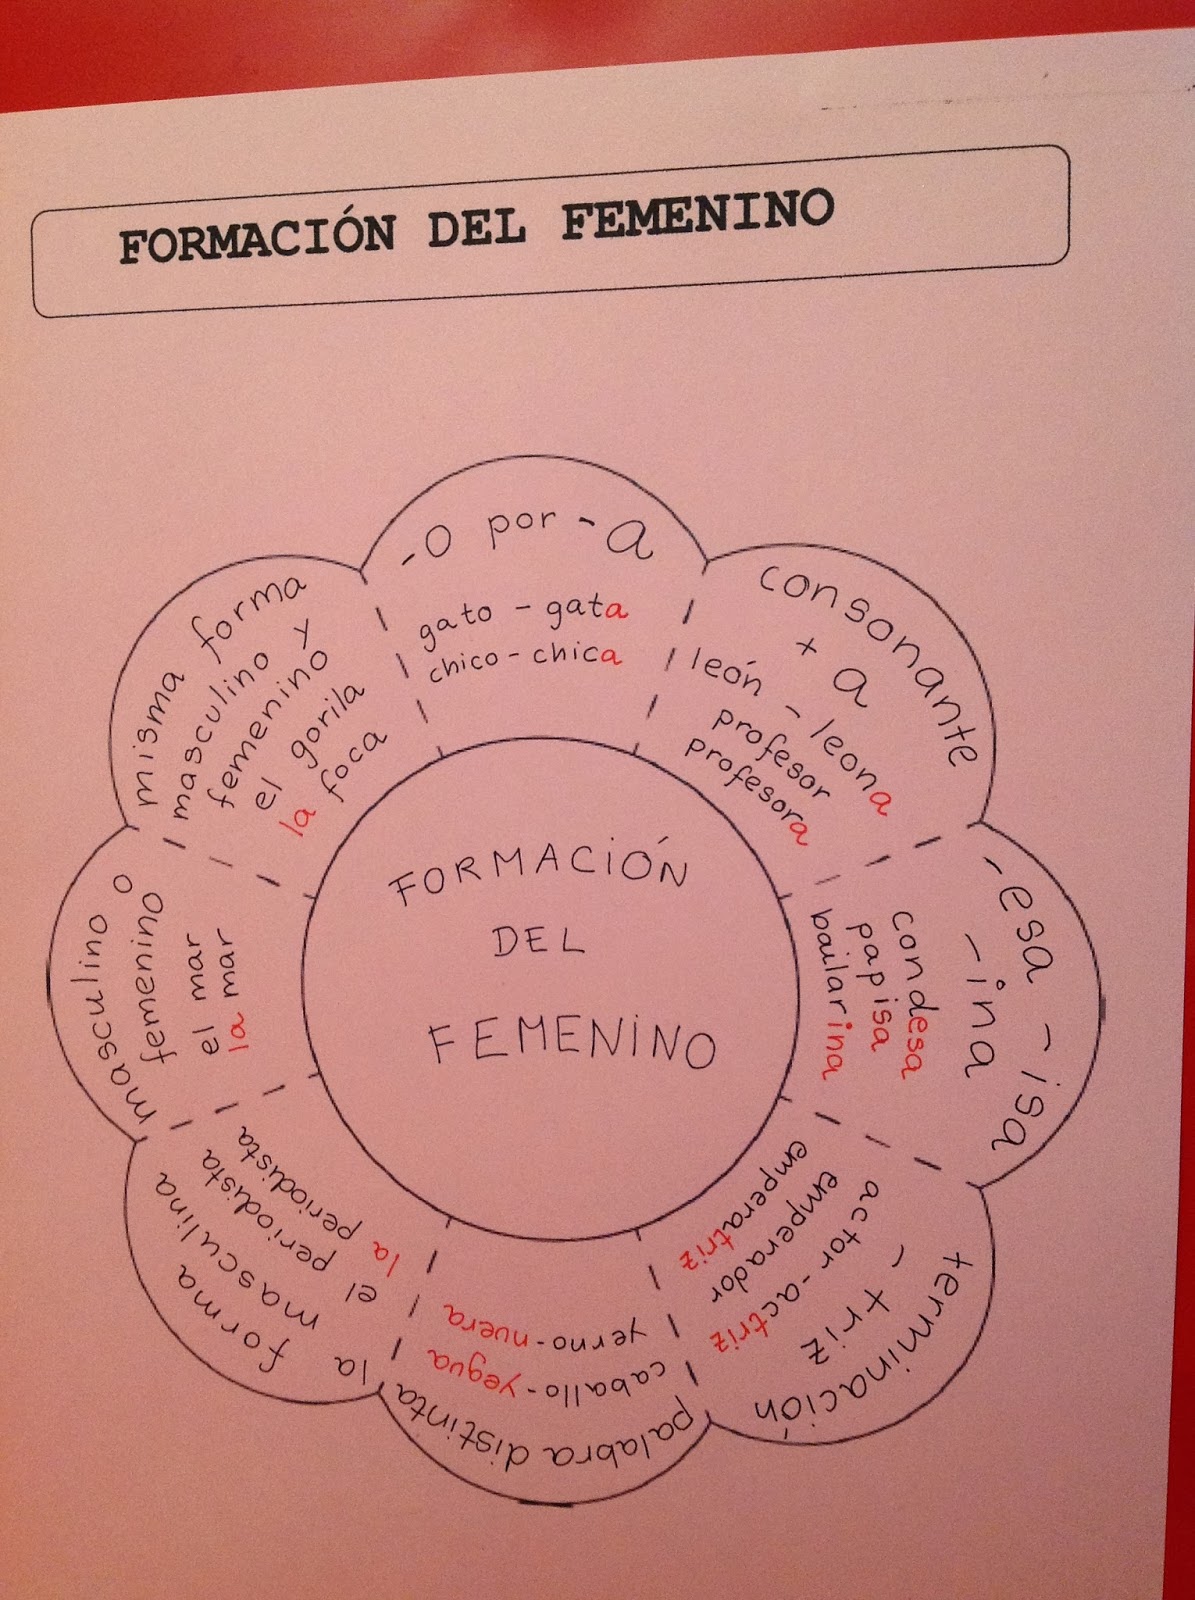 FORMACIÓN DEL FEMENINO
-o por -a
gato - gata
chico - chica
consonante
+ a
león - leona
profesor
profesora
-esa -isa
-ina
condesa
papisa
bailarina
terminación
- triz
actor - actriz
emperador
emperatriz
palabra distinta
caballo - yegua
yerno - nuera
la forma
masculina
el periodista
la periodista
masculino o
femenino
el mar
la mar
misma forma
masculino y
femenino
el gorila
la foca
FORMACIÓN
DEL
FEMENINO